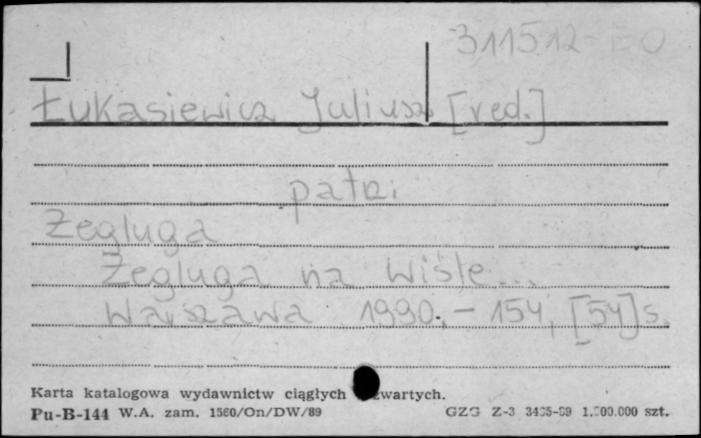 311512-
Łukasiewicz Juliusz [red.]
patrz:
Żegluga
Żegluga na Wiśle...
Warszawa 1990.- 154, [54] s.
Karta katalogowa wydawnictw ciągłych zwartych.
Pu-B-144 W.A. zam. 1560/On/DW/89 GZG Z-3 3435-89 1.500.000 szt.